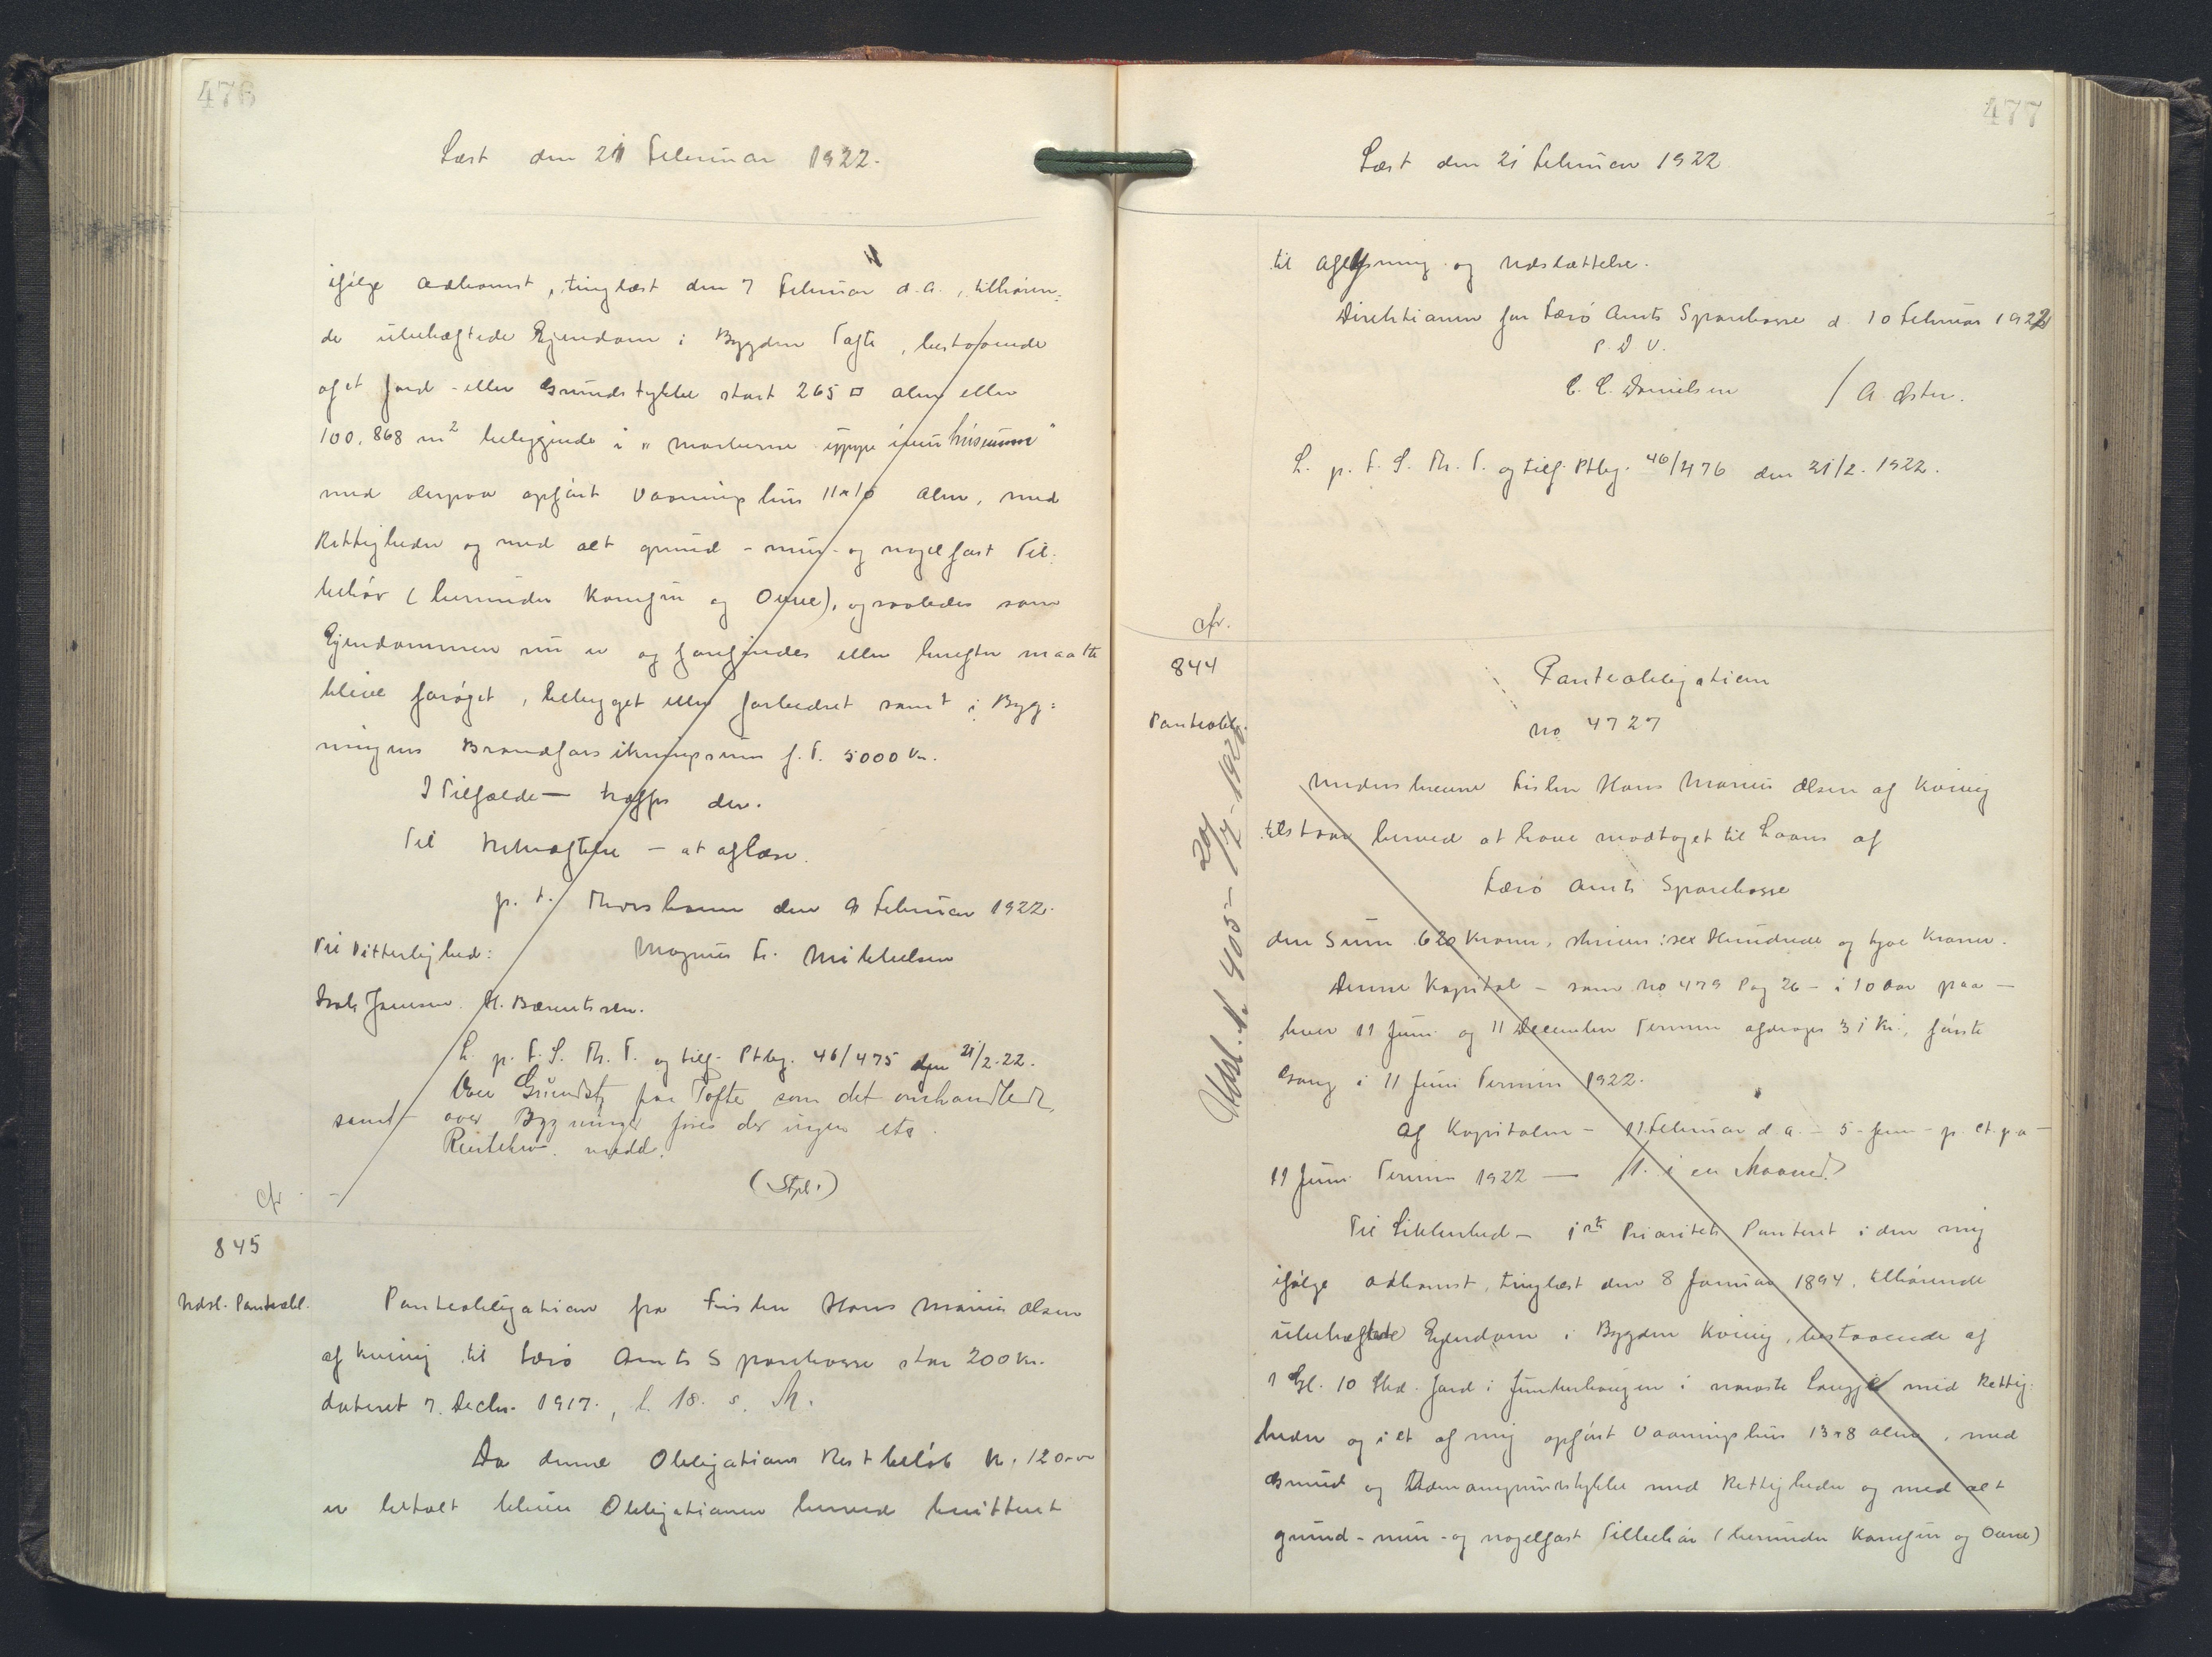 476
Læst den 21 Februar 1922.
ifølge Adkomst, tinglæst den 7 Februar d.A., tilhøren=
de ubehæftede Ejendom i Bygden Tofte, bestaaende
af et Jord- eller Grundstykke stort 265 □ Alen eller
100,868 m² beliggende i "
med derpaa opført Vaaningshus 11 x 10 Alen, med
Rettigheder og med alt grund- mur- og nagelfast Til=
behør (herunder Komfur og Ovne), og saaledes som
Ejendommen nu er og forefindes eller herefter maatte
blive forøget, bebygget eller forbedret samt i Byg=
ningens Brandforsikringssum f.T. 5000 Kr.
I Tilfælde — træffes der.
Til Bekræftelse — at aflæse.
p.t. Thorshavn den 9 Februar 1922.
Til Vitterlighed: Magnus Fr. Mikkelsen
Jensen. H. Bærentsen.
L. p. F. S. Th. T. og tilf. Ptbg. 46/475 den 21/2.22.
Over Grundst. paa Tofte som det omhandlede,
samt over Bygninger føres der ingen
Realskr. medd.
(Stpl.)
cfr.
845
Udsl. Panteobl.
Panteobligation fra Fisker Hans Marius Olsen
af Kvivig til Færø Amts Sparekasse stor 200 Kr.
dateret 7. Decbr. 1917., l. 18. s. M.
Da denne Obligations Restbeløb Kr. 120.00
er betalt bliver Obligationen herved kvitteret
477
Læst den 21 Februar 1922
til Aflysning og Udslættelse.
Direktionen for Færø Amts Sparekasse d. 10 Februar 1922
P. D. V.
C. C. Danielsen / A. Øster.
L. p. F. S. Th. T. og tilf. Ptbg. 46/476 den 21/2. 1922.
cfr.
844
Panteobl.
Udsl. A. 405 - 20/7 -
Panteobligation
no 4727
Underskrevne Fisker Hans Marius Olsen af Kvivig
tilstaar herved at have modtaget til Laans af
Færø Amts Sparekasse
den Sum 620 Kroner, skriver: sex Hundrede og tyve Kroner.
Denne Kapital — som no 479 Pag 26 — i 10 Aar paa —
hver 11 Juni og 11 December Termin afdrages 31 Kr., første
Gang i 11 Juni Termin 1922.
Af Kapitalen — 11 Februar d.A. — 5 - fem - p. Ct. p.a —
11 Juni Termin 1922 — i en Maaned.
Til Sikkerhed — 1ste Prioritets Panteret i den mig
ifølge Adkomst, tinglæst den 8 Januar 1894, tilhørende
ubehæftede Ejendom i Bygden Kvivig, bestaaende af
1 Gl. 10 Skd. Jord i i med Rettig=
heder og i et af mig opført Vaaningshus 13 x 8 Alen, med
Grund og med Rettigheder og med alt
grund- mur- og nagelfast Tilbehør (herunder Komfur og Ovne)